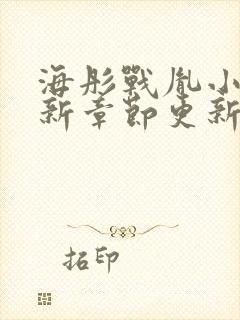 海彤戰胤小
新章節更新
拓印